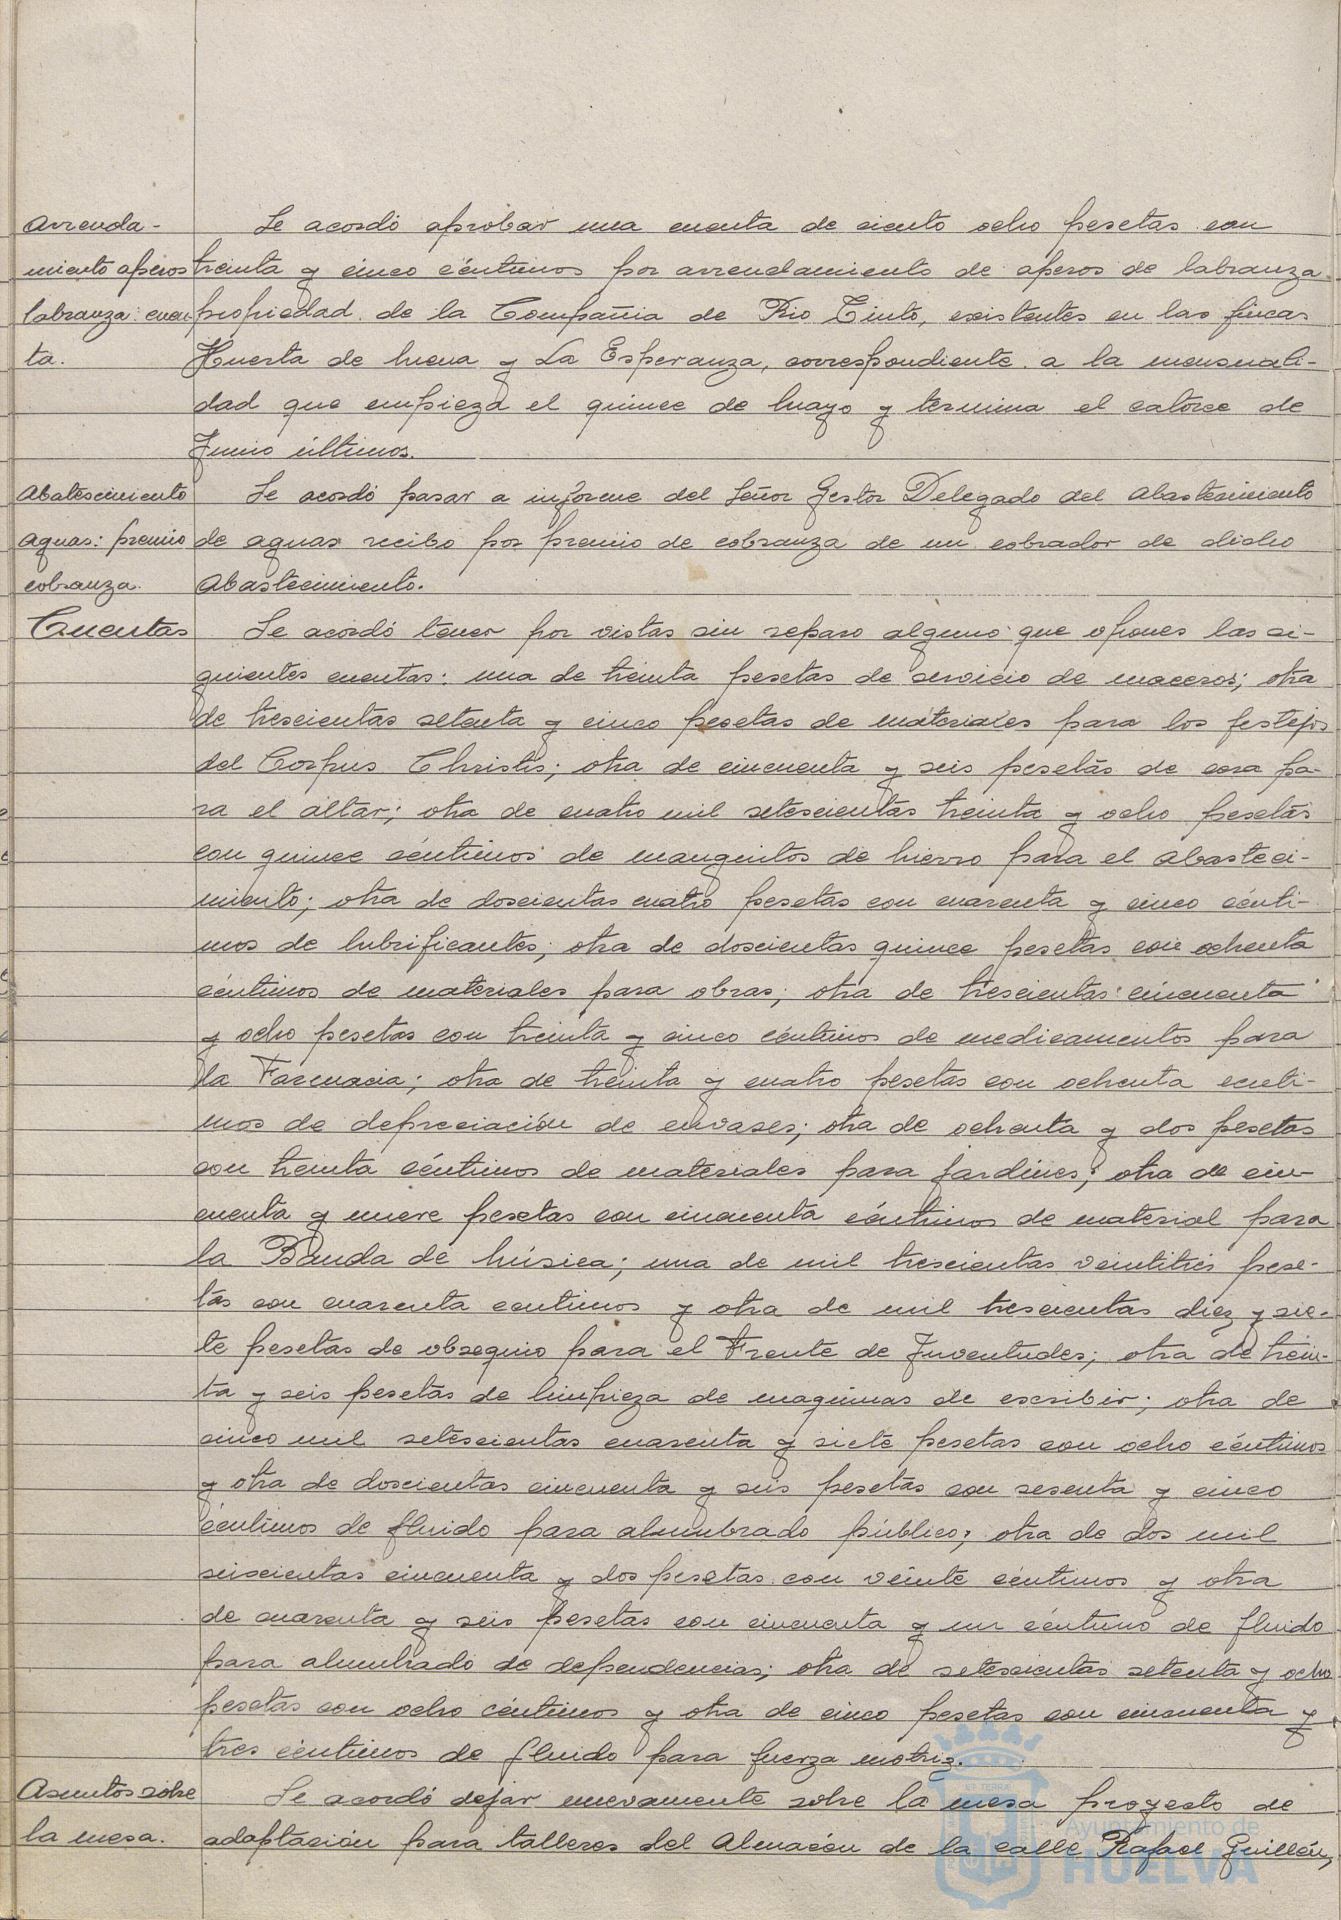 Arrenda-
miento aperos
labranza: cuen-
ta.
Se acordó aprobar una cuenta de ciento ocho pesetas con
treinta y cinco céntimos por arrendamiento de aperos de labranza
propiedad de la Compañia de Rio Tinto, existentes en las fincas
Huerta de Mena y La Esperanza, correspondiente a la mensuali-
dad que empieza el quince de Mayo y termina el catorce de
Junio últimos.
Abatescimiento
aguas: premio
cobranza.
Se acordó pasar a informe del Señor Gestor Delegado del Abastecimiento
de aguas recibo por premio de cobranza de un cobrador de dicho
Abastecimiento.
Cuentas
Se acordó tener por vistas sin reparo alguno que oponer las si-
guientes cuentas: una de treinta pesetas de servicio de maceros; otra
de trescientas setenta y cinco pesetas de materiales para los festejos
del Corpus Christis; otra de cincuenta y seis pesetas de cera pa-
ra el altar; otra de cuatro mil setescientas treinta y ocho pesetas
con quince céntimos de manguitos de hierro para el abasteci-
miento; otra de doscientas cuatro pesetas con cuarenta y cinco cénti-
mos de lubrificantes; otra de doscientas quince pesetas con ochenta
céntimos de materiales para obras; otra de trescientas cincuenta
y ocho pesetas con treinta y cinco céntimos de medicamentos para
la Farmacia; otra de treinta y cuatro pesetas con ochenta centi-
mos de depreciación de envases; otra de ochenta y dos pesetas
con treinta céntimos de materiales para jardines; otra de cin-
cuenta y nueve pesetas con cincuenta céntimos de material para
la Banda de Música; una de mil trescientas veintitrés pese-
tas con cuarenta centimos y otra de mil trescientas diez y sie-
te pesetas de obsequio para el Frente de Juventudes; otra de trein-
ta y seis pesetas de limpieza de maquinas de escribir; otra de
cinco mil setescientas cuarenta y siete pesetas con ocho céntimos
y otra de doscientas cincuenta y seis pesetas con sesenta y cinco
céntimos de fluido para alumbrado público; otra de dos mil
seiscientas cincuenta y dos pesetas con veinte céntimos y otra
de cuarenta y seis pesetas con cincuenta y un céntimo de fluido
para alumbrado de dependencias; otra de setescientas setenta y ocho
pesetas con ocho céntimos y otra de cinco pesetas con cincuenta y
tres céntimos de fluido para fuerza motriz.
Asuntos sobre
la mesa.
Se acordó dejar nuevamente sobre la mesa proyecto de
adaptación para talleres del Almacén de la calle Rafael Guillén,
Ayuntamiento de
HUELVA